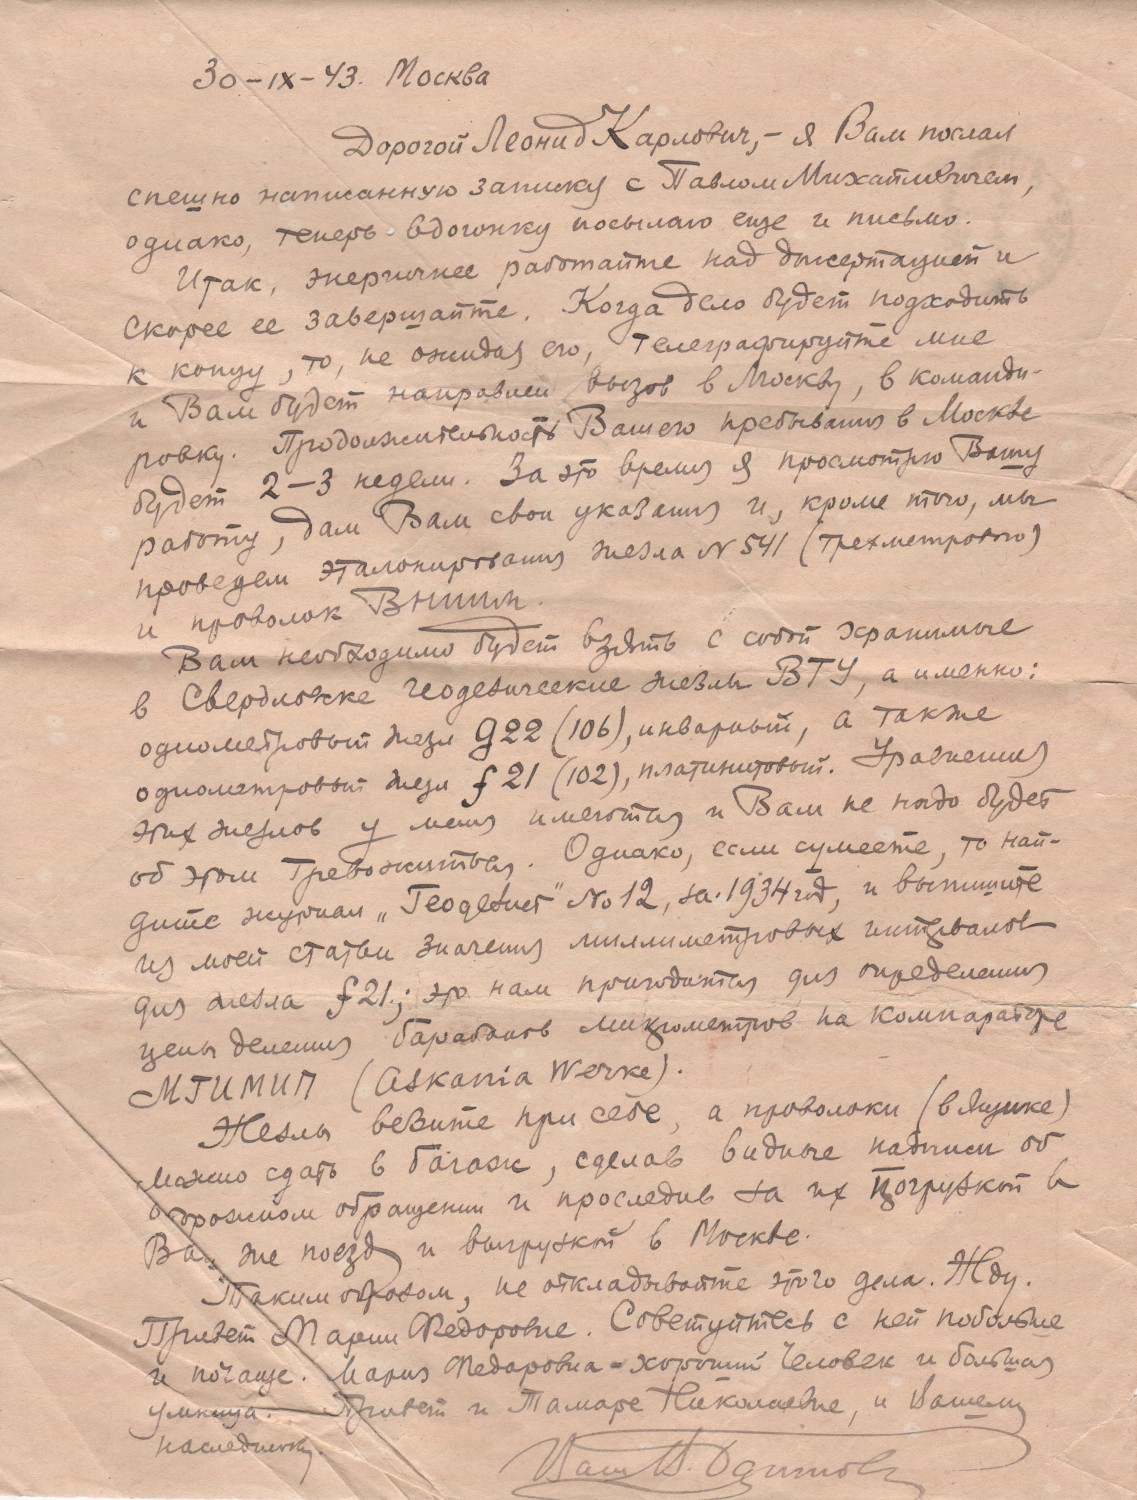 30-IX-43. Москва
Дорогой Леонид Карлович, - я Вам послал
спешно написанную записку с Павлом Михайловичем,
однако, теперь вдогонку посылаю еще и письмо.
Итак, энергичнее работайте над диссертацией и
скорее ее завершайте. Когда дело будет подходить
к концу, то, не ожидая его, телеграфируйте мне
и Вам будет направлен вызов в Москву, в команди-
ровку. Продолжительность Вашего пребывания в Москве
будет 2-3 недели. За это время я просмотрю Вашу
работу, дам Вам свои указания и, кроме того, мы
проведем эталонирования жезла N 541 (трехметрового)
и проволок ВНИИМ.
Вам необходимо будет взять с собой хранимые
в Свердловске геодезические жезлы ВТУ, а именно:
однометровый жезл g22 (106), инварный, а также
однометровый жезл f 21 (102), платинитовый. Уравнения
этих жезлов у меня имеются и Вам не надо будет
об этом тревожиться. Однако, если сумеете, то най-
дите журнал „Геодезист" No 12, за 1934 год, и выпишите
из моей статьи значения миллиметровых интервалов
для жезла f 21.; это нам пригодится для определения
цены деления барабанов микрометров на компараторе
МГИМИП (Askania Werke).
Жезлы везите при себе, а проволоки (в ящике)
можно сдать в багаж, сделав видные надписи об
осторожном обращении и проследив за их погрузкой в
Ваш же поезд и выгрузкой в Москве.
Таким образом, не откладывайте этого дела. Жду.
Привет Марии Федоровне. Советуйтесь с ней побольше
и почаще. Мария Федоровна - хороший человек и большая
умница. — Привет и Тамаре Николаевне, и Вашему
наследнику.
Ваш